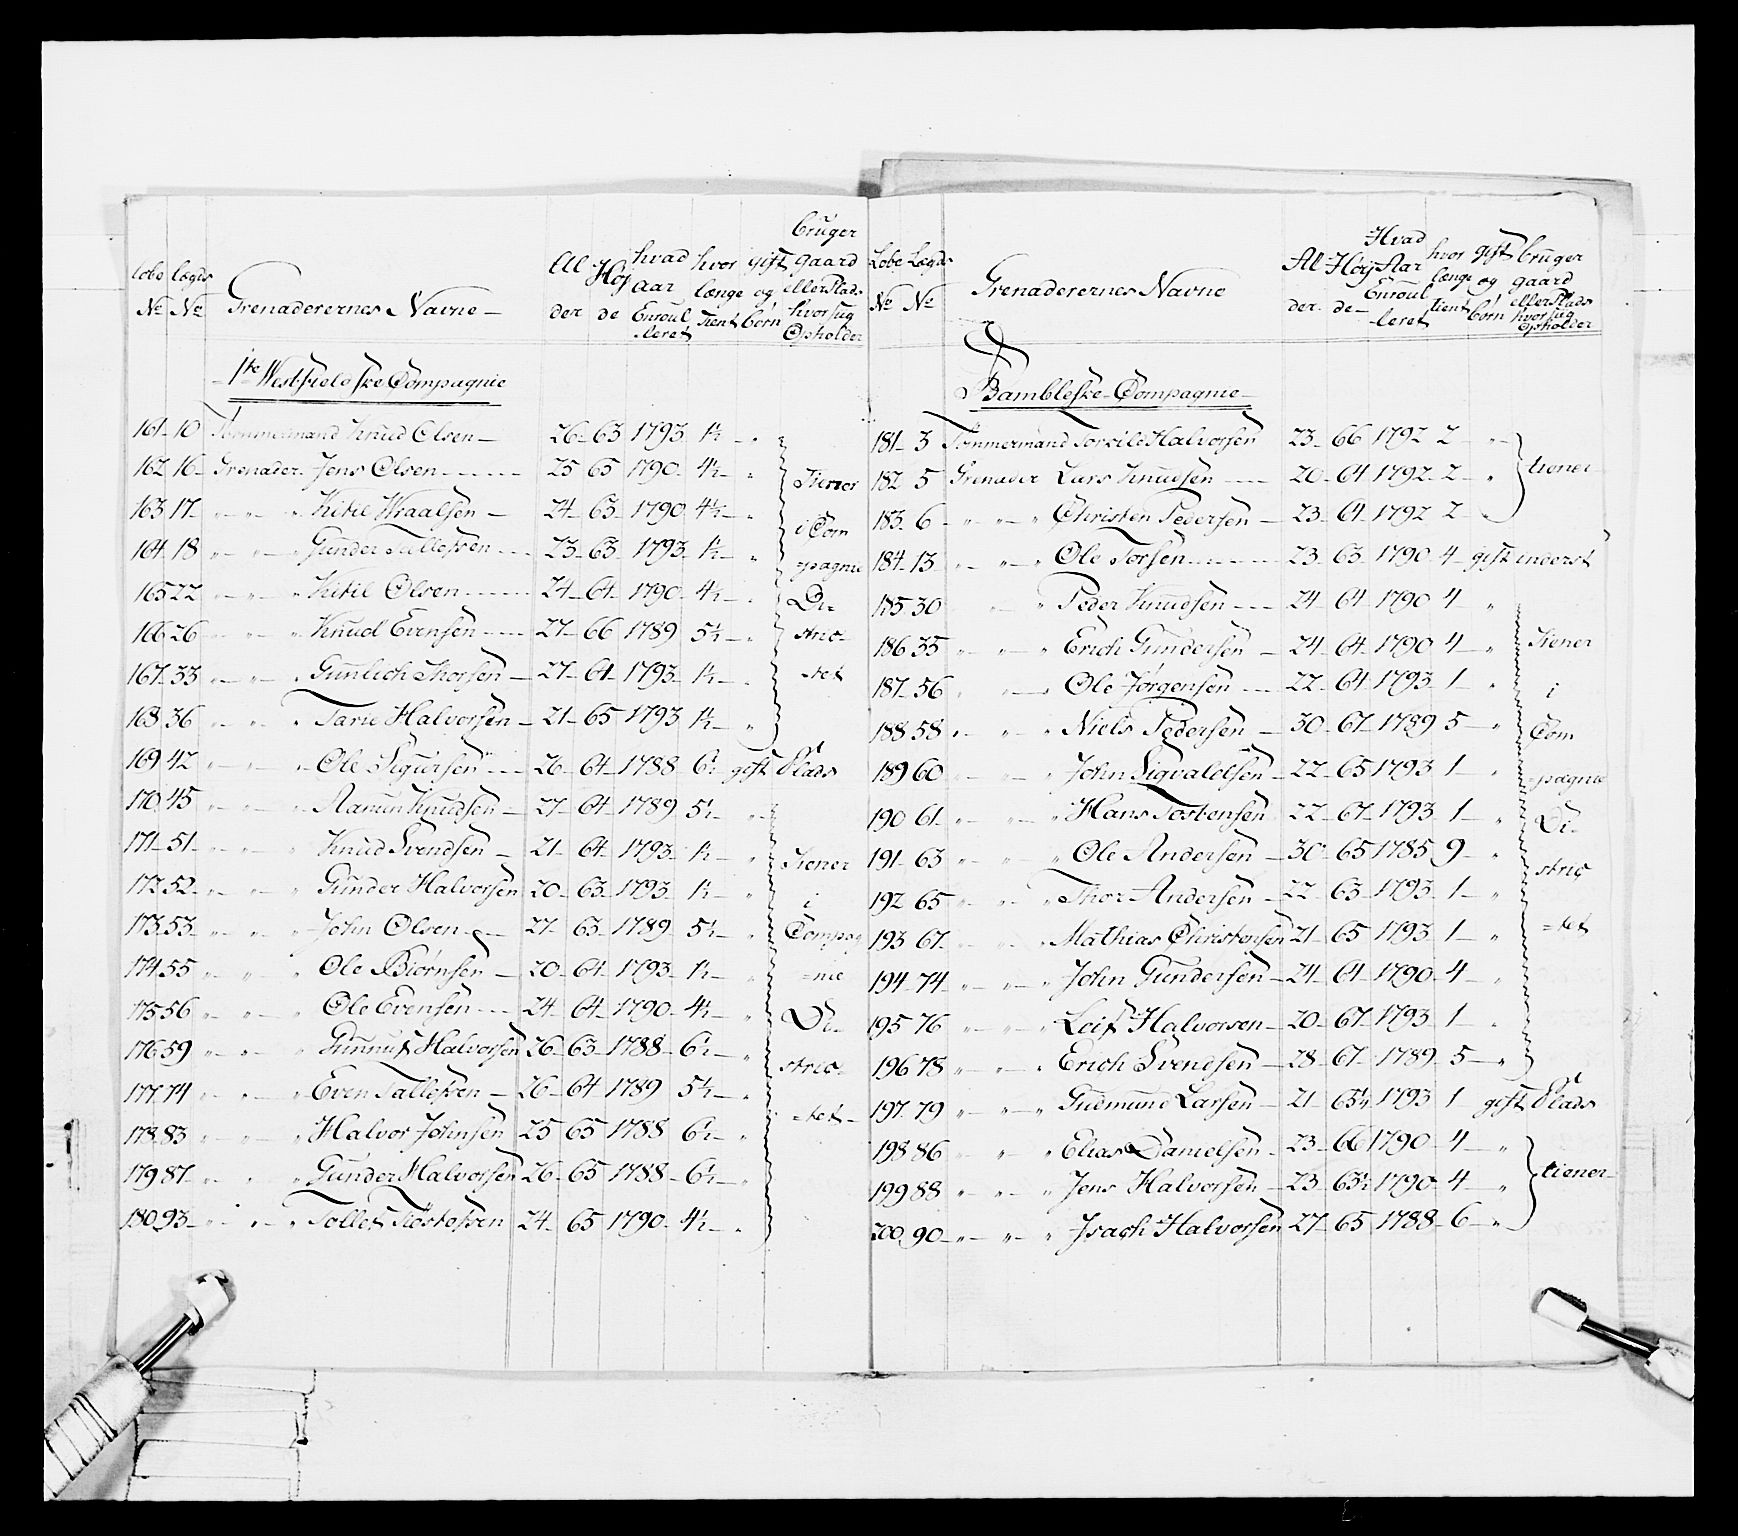 Lobe No | Lægds No | Grenaderernes Navne | Alder | Høyde | hvad aar Enroulleret | hvor længe tient | gift og børn | bruger gaard eller Plads hvorsug Opholder
1te Westfieldske Compagnie
161 10 Tømmermand Knud Olsen 26 63 1793 1½ "
162 16 Grenader Jens Olsen 25 65 1790 4½ "
163 17 " " " Kitil Wraalsen 24 63 1790 4½ "
164 18 " " " Gunder Tallefsen 23 63 1793 1½ "
165 22 " " " Kitil Olsen 24 64 1790 4½ "
166 26 " " " Knud Evensen 27 66 1789 5½ "
167 33 " " " Gunlich Thorsen 27 64 1793 1½ "
168 36 " " " Tarie Halvorsen 21 65 1793 1½ "
Tiener i Compagnie Districtet
169 42 " " " Ole Sigursen 26 64 1788 6½ gift Plads
170 45 " " " Aanun Knudsen 27 64 1789 5½ "
171 51 " " " Knud Svendsen 21 64 1793 1½ "
172 52 " " " Gunder Halvorsen 20 63 1793 1½ "
173 53 " " " John Olsen 27 63 1789 5½ "
174 55 " " " Ole Biørnsen 20 64 1793 1½ "
175 56 " " " Ole Evensen 24 64 1790 4½ "
176 59 " " " Gunnuf Halvorsen 26 63 1788 6½ "
177 74 " " " Even Tallefsen 26 64 1789 5½ "
178 83 " " " Halvor Johnsen 25 65 1788 6½ "
179 87 " " " Gunder Halvorsen 26 65 1788 6½ "
180 93 " " " Tollef Tiøstolsen 24 65 1790 4½ "
Tiener i Compagnie Districtet
Lobe No | Lægds No | Grenaderernes Navne | Alder | Høyde | Hvad Aar Enroulleret | hvor længe tient | gift og børn | bruger gaard eller Plads hvorsug Opholder
Bambleske Compagnie
181 3 Tømmermand Torkild Halvorsen 23 66 1792 2 "
182 5 Grenader Lars Knudsen 20 64 1792 2 "
183 6 " " " Christen Pedersen 23 64 1792 2
tiener
184 13 " " " Ole Torsen 23 63 1790 4 gift inderst
185 30 " " Peder Knudsen 24 64 1790 4 "
186 35 " " " Erich Gundersen 24 64 1790 4 "
187 56 " " " Ole Jørgensen 22 64 1793 1 "
188 58 " " " Niels Pedersen 30 67 1789 5 "
189 60 " " " John Sigvaldsen 22 65 1793 1 "
190 61 " " " Hans Tostensen 22 67 1793 1 "
191 63 " " " Ole Andersen 30 65 1785 9 "
192 65 " " " Thor Andersen 22 63 1793 1 "
193 67 " " " Mathias Christensen 21 65 1793 1 "
194 74 " " " John Gundersen 24 64 1790 4 "
195 76 " " " Leif Halvorsen 20 67 1793 1 "
196 78 " " " Erich Svendsen 28 67 1789 5 "
Tiener i Compagnie Districtet
197 79 " " " Gudmund Larsen 21 65¼ 1793 1 gift Plads
198 86 " " " Elias Danielsen 23 66 1790 4 "
199 88 " " " Jens Halvorsen 23 63½ 1790 4 "
200 90 " " " Isach Halvorsen 27 65 1788 6 "
tiener